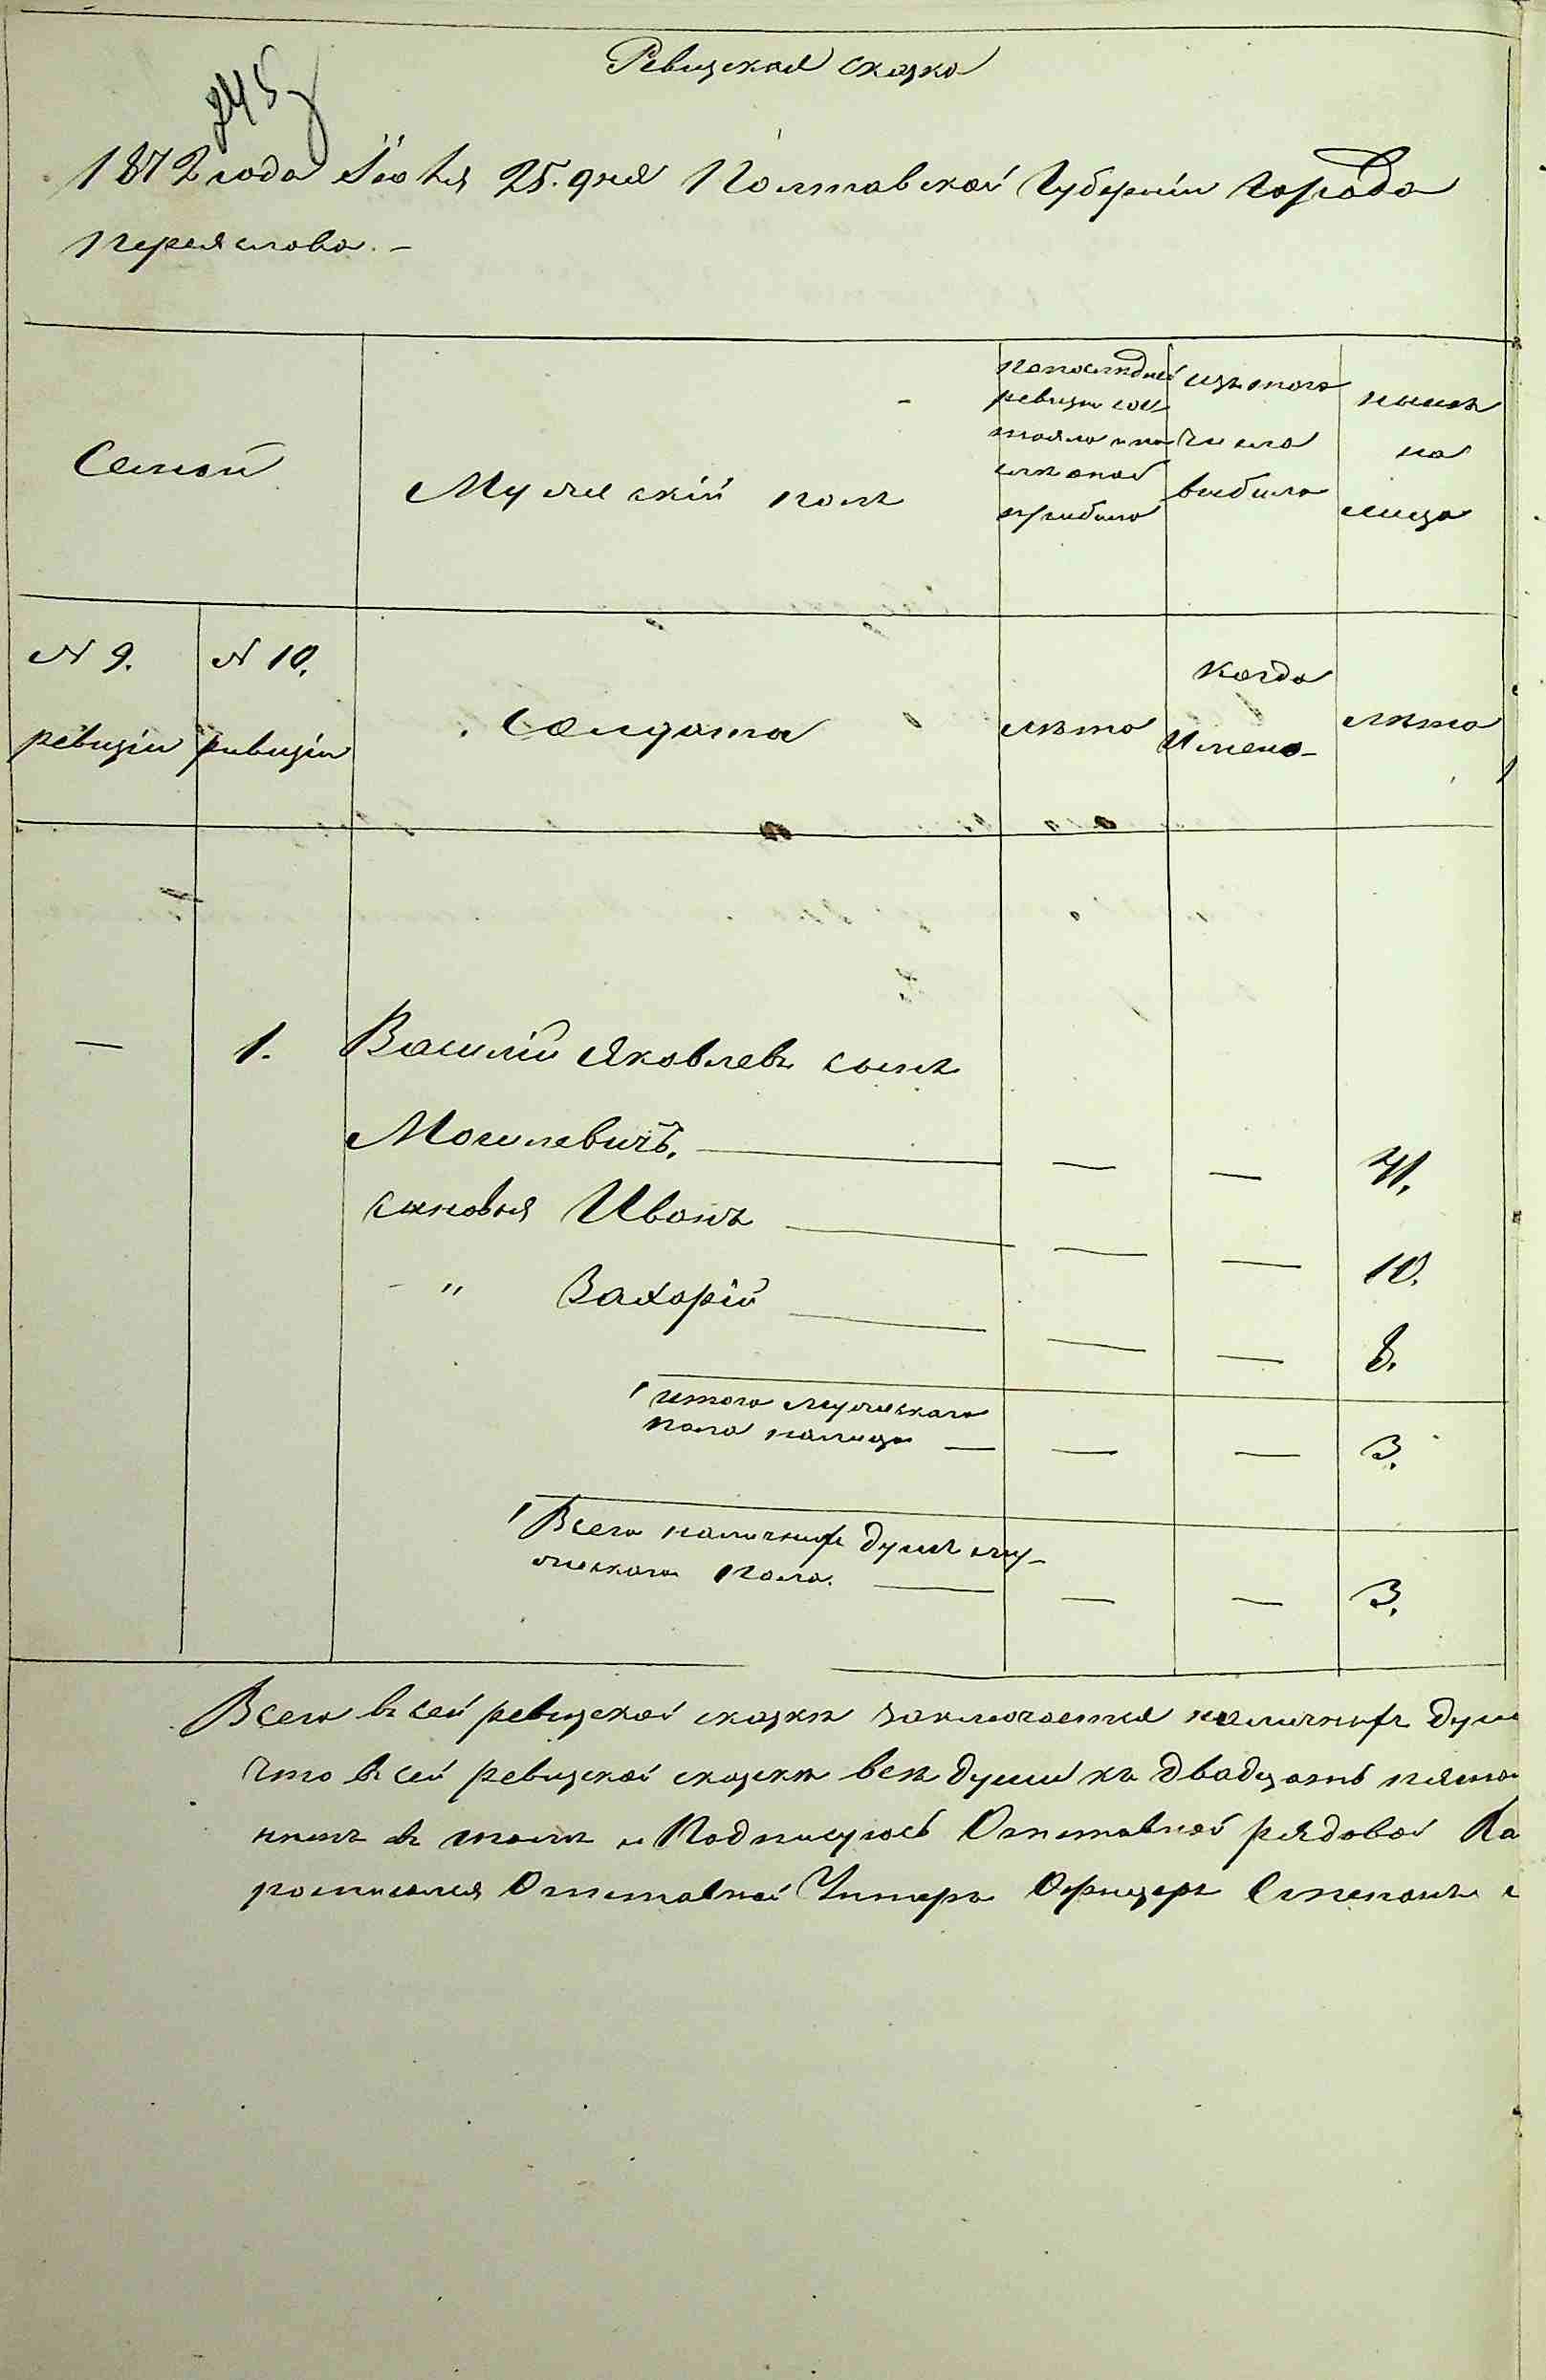 Ревизская сказка
245
1872 года Іюня 25. дня Полтавской Губерніи города
Переяслова. –
Семьи
Мужескій полъ
По последней
ревизіи сос
тояло и по
слѣ оной
прибыло
изъ того
числа
выбыло
нынѣ
на
лицо
N 9.
ревизіи
N 10.
ривизіи
Солдата
лѣта
когда
Имено–
лѣта
— 1. Василій Яковлевъ сынъ
Могилевичъ. — — — 41.
сыновья Иванъ — — — 10.
" Захарій — — — 8.
итого мужескаго
пола налицо — — — 3.
Всего наличныхъ душъ му–
жескаго пола. — — — 3.
Всего въ сей ревизской сказки заключается наличныхъ душ
что въ сей ревизской сказкѣ всѣ души къ двадцать пято
въ томъ и Подписуюсь Отставной рядовой Ка
росписался Отставной Унтеръ Офицеръ Степанъ